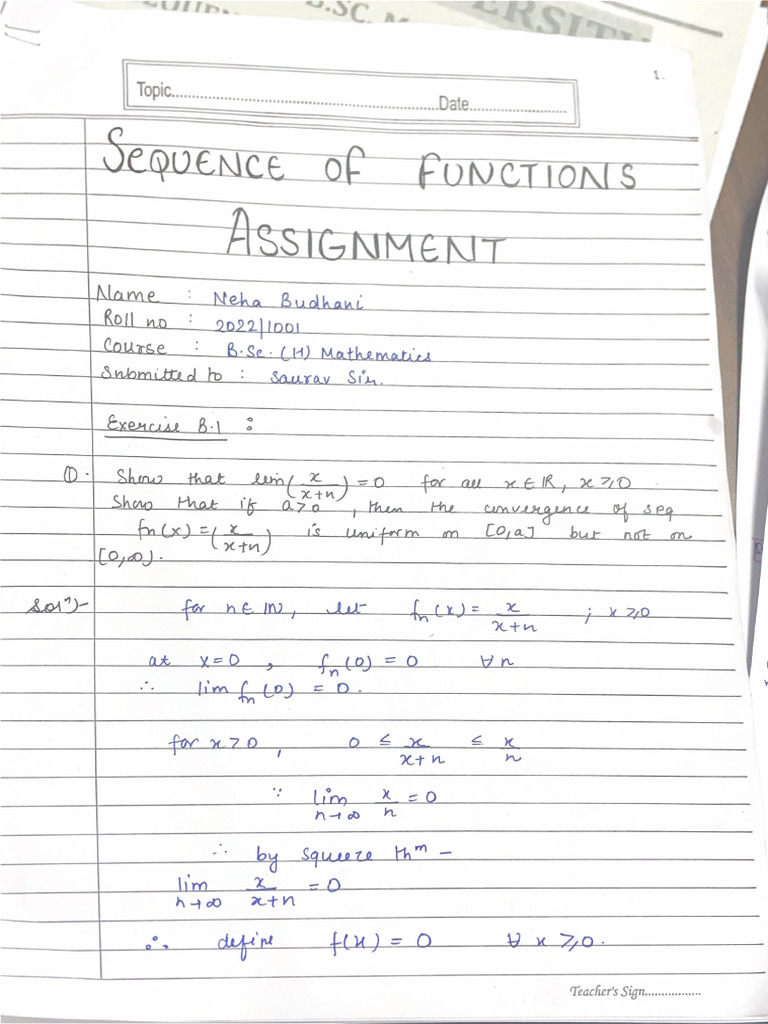 B.SC. M
ERSITY
1.
Topic..........Date..........
SEQUENCE OF FUNCTIONS
ASSIGNMENT
Name : Neha Budhani
Roll no : 2022/1001
Course : B.Sc. (H) Mathematics
Submitted to : Saurav Sir.
Exercise 8.1 :
①. Show that lim(x/(x+n)) = 0 for all x ∈ ℝ, x ≥ 0
Show that if a>0, then the convergence of seq
fn(x) = (x/(x+n)) is uniform on [0,a] but not on
[0,∞).
Solⁿ- for n ∈ ℕ, let fn(x) = x/(x+n) ; x ≥ 0
at x=0, fn(0) = 0 ∀ n
∴ lim fn(0) = 0.
for x > 0, 0 ≤ x/(x+n) ≤ x/n
∵ lim n→∞ x/n = 0
∴ by squeeze thᵐ –
lim n→∞ x/(x+n) = 0
∴ define f(x) = 0 ∀ x ≥ 0.
Teacher's Sign..........